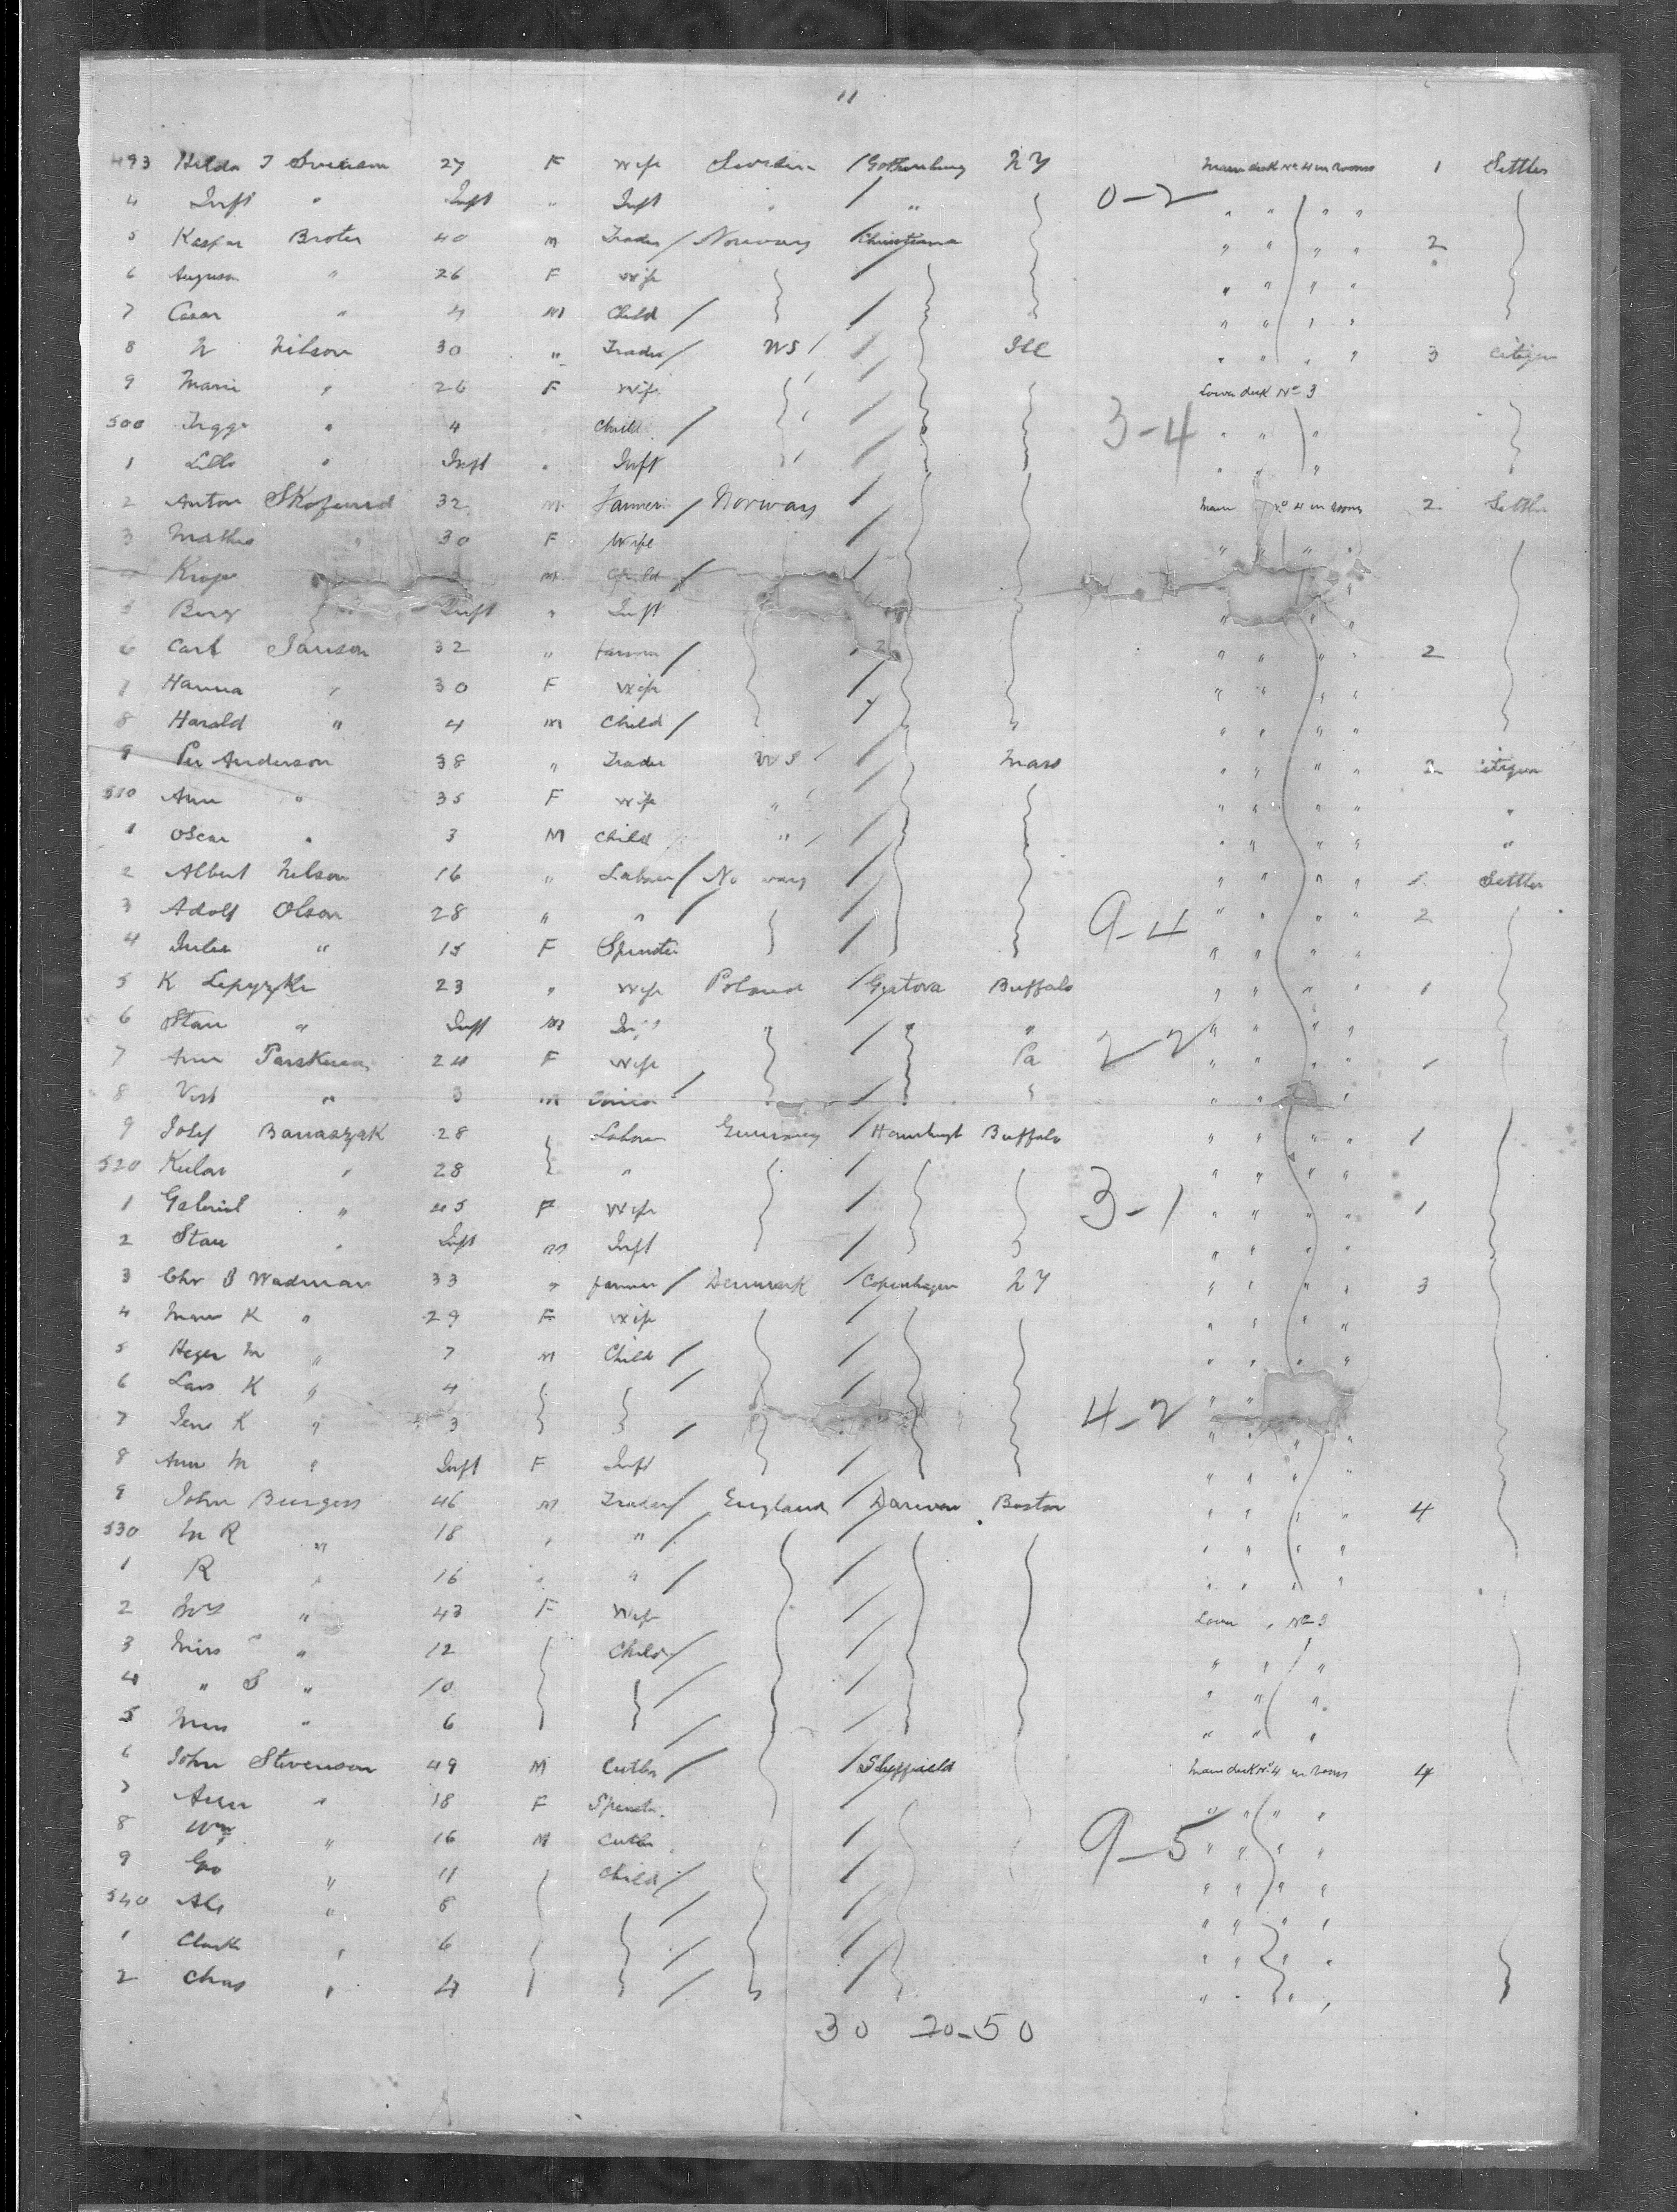 11
493 Hilda J 27 F Wife Sweden / Gothenburg N Y Main deck No 4 in rooms 1 Settler
4 Inft " Inft " Inft " / " 0-2 " " " "
5 Kasper Broter 40 M Trader / Norway / Christiana " " " " 2
6 " 26 F Wife / " " " "
7 " 4 M Child / / " " " "
8 N Nilson 30 " Trader / US / / Ill " " " " 3 Citizen
9 Marie " 26 F Wife / Lower deck No 3
500 " 4 Child / / 3-4 " " "
1 " Inft " Inft / " " "
2 Anton 32 M Farmer / Norway / Main No 4 in rooms 2 Settler
3 " 30 F Wife / " " " "
M Child / /
5 Berg Inft " Inft "
6 Carl Janson 32 " Farmer / / " " " " 2
7 Hanna " 30 F Wife / " " " "
8 Harald " 4 M Child / / " " " "
9 Per Anderson 38 " Trader US / / Mass " " " " 2 Citizen
510 Ann " 35 F Wife " / / " " " " "
1 Oscar " 3 M Child " / / " " " " "
2 Albert Nelson 16 " Laborer / Norway / " " " " 1 Settler
3 Adolf Olson 28 " " / / 9-4 " " " " 2
4 Julia " 15 F Spinster / " " " "
5 K 23 " Wife Poland / Buffalo " " " " 1
6 Stan " Inft M Inft " / " " " " "
7 Ann 24 F Wife / Pa 2-2 " " " " 1
8 " 3 M / / " " " "
9 Josef Banaszak 28 Laborer Germany / Buffalo " " " " 1
520 " 28 " / " " " "
1 Gabriel " 45 F Wife / 3-1 " " " " 1
2 Stan " Inft M Inft / " " " "
3 Chr Wadman 33 " Farmer / Denmark / Copenhagen N Y " " " " 3
4 K " 29 F Wife / " " " "
5 M " 7 M Child / / " " " "
6 Lars K " 4 / / " "
7 Jens K " 3 / 4-2 " " " "
8 Ann M " Inft F Inft / " " " "
9 John Burgess 46 M Trader / England / Darwen Boston " " " " 4
530 M R " 18 " " / / " " " "
1 R " 16 " " / / " " " "
2 Mrs " 43 F Wife / Lower " No 3
3 Miss " 12 Child / / " " "
4 " S " 10 / / " " "
5 Miss " 6 / / " " "
6 John Stevenson 49 M Cutler / / Sheffield Main deck No 4 in rooms 4
7 Ann " 18 F Spinster / " " " "
8 Wm " 16 M Cutler / 9-5 " " " "
9 Geo " 11 Child / / " " " "
540 " 8 / / " " " "
1 " 6 / / " " " "
2 Chas " 4 / / " " " "
30 20-50